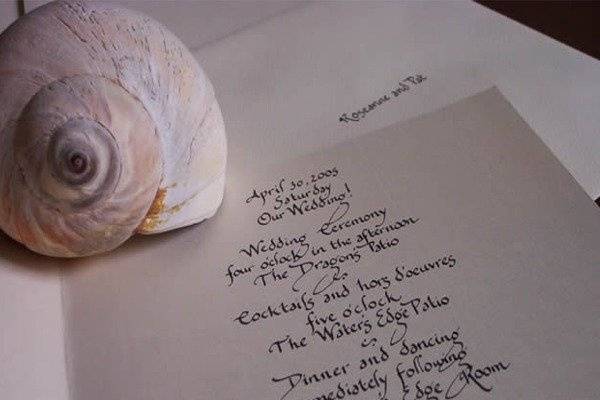 Roseanne and Pat
April 30, 2005
Saturday
Our Wedding!
Wedding Ceremony
four o'clock in the afternoon
The Dragons Patio
Cocktails and hors d'oeuvres
five o'clock
The Water's Edge Patio
Dinner and dancing
mediately following
Edge Room